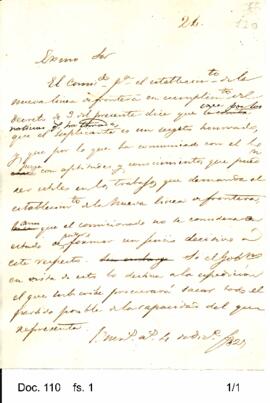 26.
Exmo Sor
El Comis.do p.a el establecim.to de la
nueva linea de frontera en cumplim.to del
decreto de 3 del presente dice que
cree por las
noticias q.e ha tenido
que el suplicante es un sugeto honrado,
y que por lo que ha comunicado con el lo
con aptitudes y conocimientos que puede
ser utiles en los trabajos que demanda el
establecim.to de la Nueva linea de frontera,
que el comicionado no te considera en
estado de formar un juicio decisivo á
este respecto. Sin embargo Si el Gob.no
en vista de esto lo destina a la espedicion
el que subscribe procurará sacar todo el
partido posible de la capacidad del que
representa.
Doc. 110 fs. 1
1/1